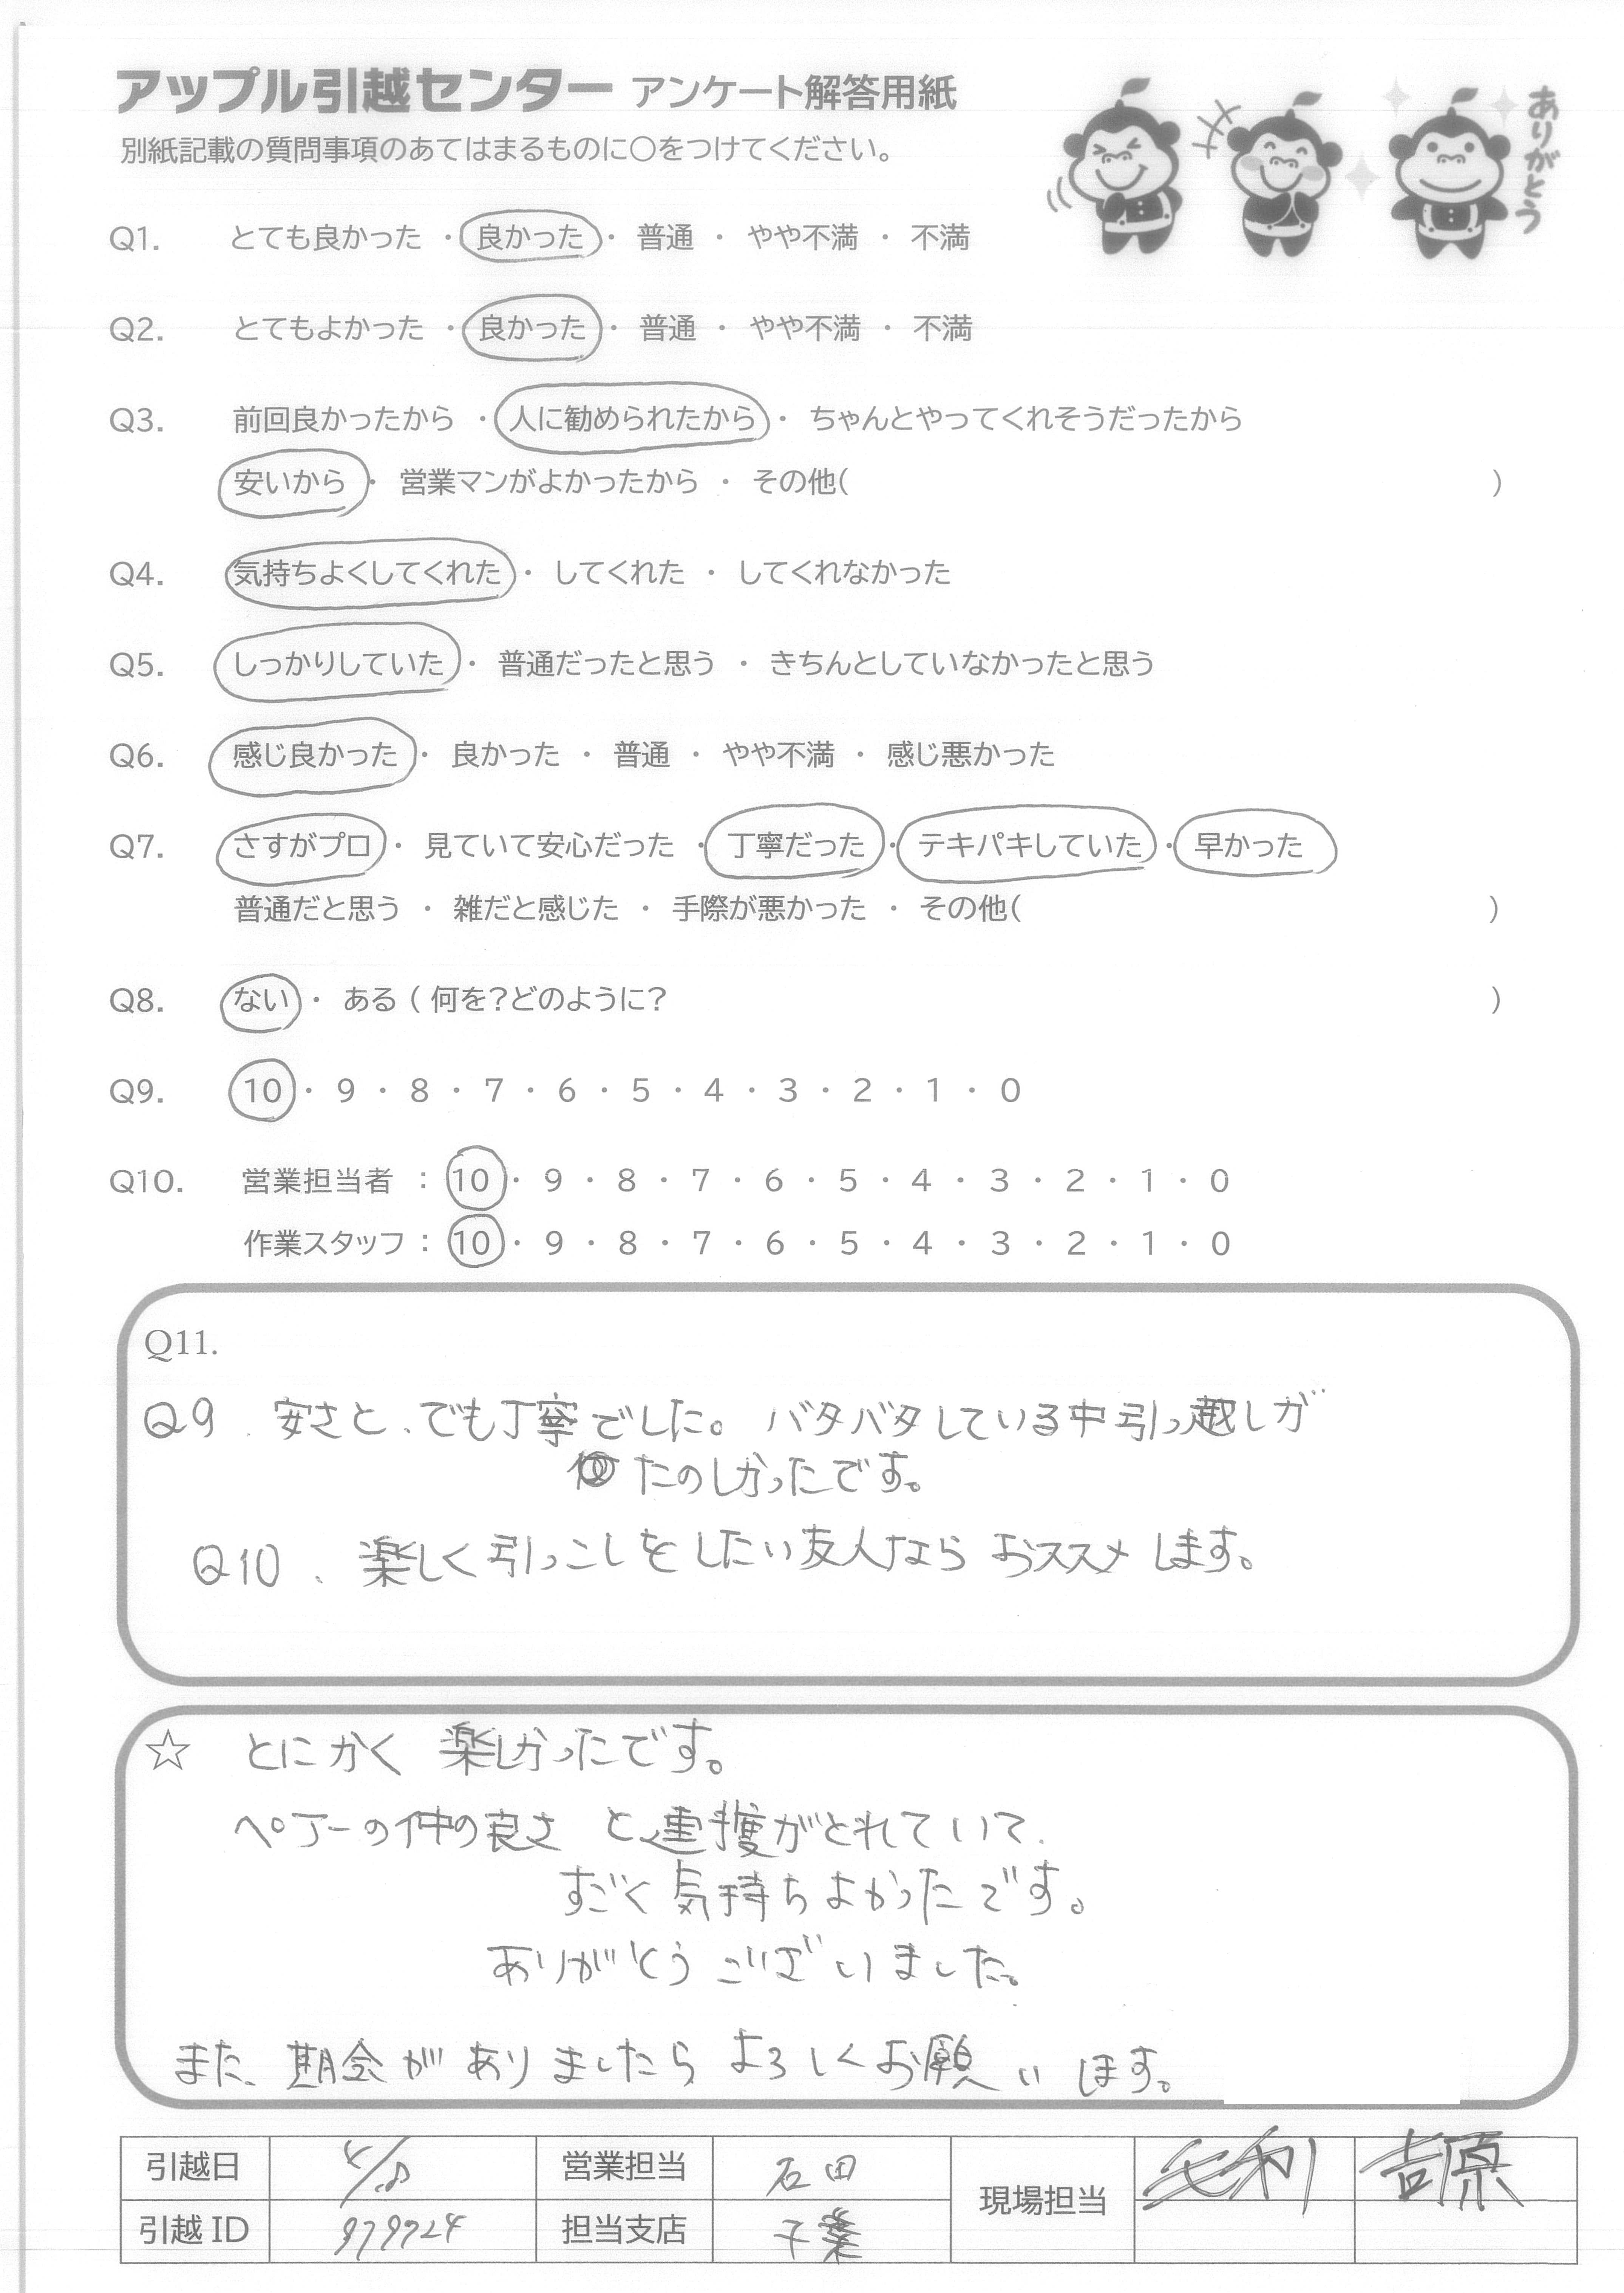 アップル引越センター アンケート解答用紙
ありがとう
別紙記載の質問事項のあてはまるものに〇をつけてください。
Q1. とても良かった ・ 良かった ・ 普通 ・ やや不満 ・ 不満
Q2. とてもよかった ・ 良かった ・ 普通 ・ やや不満 ・ 不満
Q3. 前回良かったから ・ 人に勧められたから ・ ちゃんとやってくれそうだったから
安いから ・ 営業マンがよかったから ・ その他( )
Q4. 気持ちよくしてくれた ・ してくれた ・ してくれなかった
Q5. しっかりしていた ・ 普通だったと思う ・ きちんとしていなかったと思う
Q6. 感じ良かった ・ 良かった ・ 普通 ・ やや不満 ・ 感じ悪かった
Q7. さすがプロ ・ 見ていて安心だった ・ 丁寧だった ・ テキパキしていた ・ 早かった
普通だと思う ・ 雑だと感じた ・ 手際が悪かった ・ その他( )
Q8. ない ・ ある ( 何を?どのように? )
Q9. 10 ・ 9 ・ 8 ・ 7 ・ 6 ・ 5 ・ 4 ・ 3 ・ 2 ・ 1 ・ 0
Q10. 営業担当者 : 10 ・ 9 ・ 8 ・ 7 ・ 6 ・ 5 ・ 4 ・ 3 ・ 2 ・ 1 ・ 0
作業スタッフ : 10 ・ 9 ・ 8 ・ 7 ・ 6 ・ 5 ・ 4 ・ 3 ・ 2 ・ 1 ・ 0
Q11.
Q9. 安さと、でも丁寧でした。バタバタしている中引っ越しが
たのしかったです。
Q10. 楽しく引っこしをしたい友人なら おススメします。
☆ とにかく 楽しかったです。
ペアーの仲の良さ と連携がとれていて、
すごく気持ちよかったです。
ありがとうございました。
また、期会がありましたら よろしくお願いします。
引越日 営業担当 石田 現場担当 毛利 吉原
引越ID 979724 担当支店 千葉